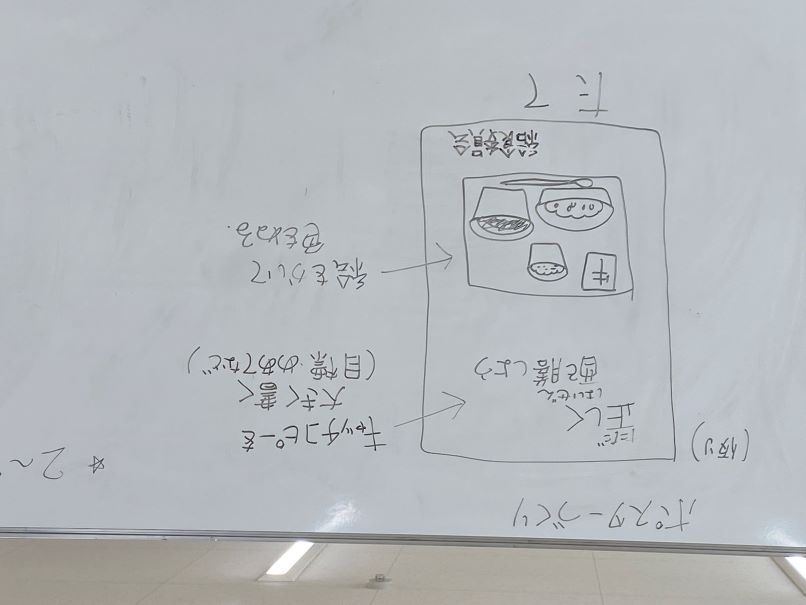 ポスターづくり
(例)
ただ
正しく
はいぜん
配膳しよう
キャッチコピーを
大きく書く
(目標・めあてなど)
牛
絵をかいて
色をぬる.
給食委員会
たて
☆2~